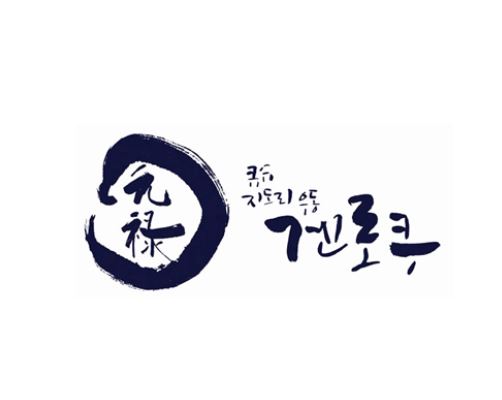 元禄
큐슈
지도리 우동
겐로쿠